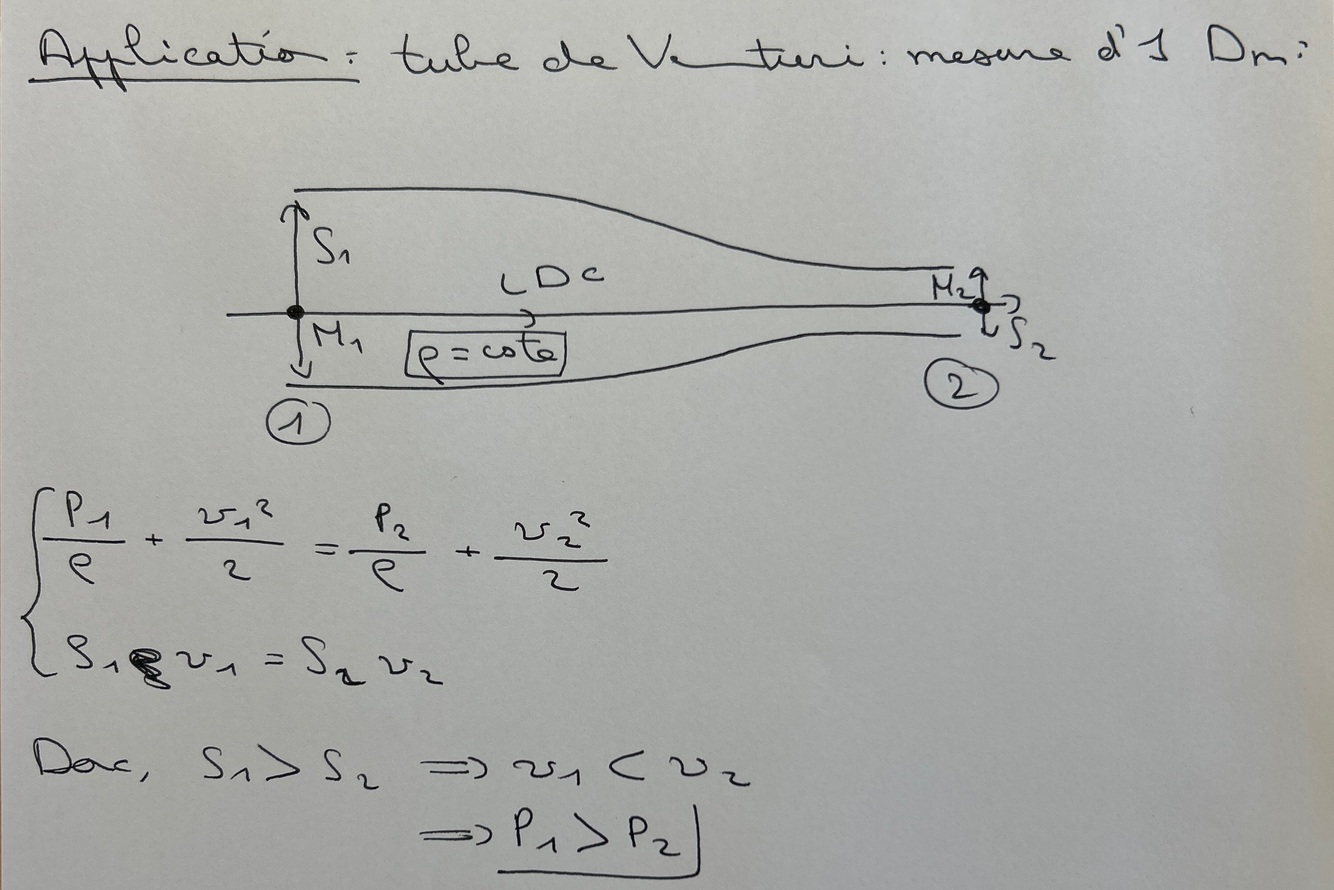 Application : tube de Venturi : mesure d'1 Dm :
S₁
LDC
M₂
M₁
ρ = cste
S₂
①
②
P₁/ρ + v₁²/2 = P₂/ρ + v₂²/2
S₁ v₁ = S₂ v₂
Donc, S₁ > S₂ ⟹ v₁ < v₂
⟹ P₁ > P₂